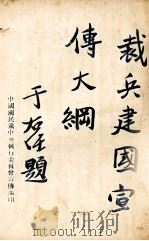 裁兵建國宣
傳大綱
于右任題
中國國民黨中央執行委員會宣傳部印